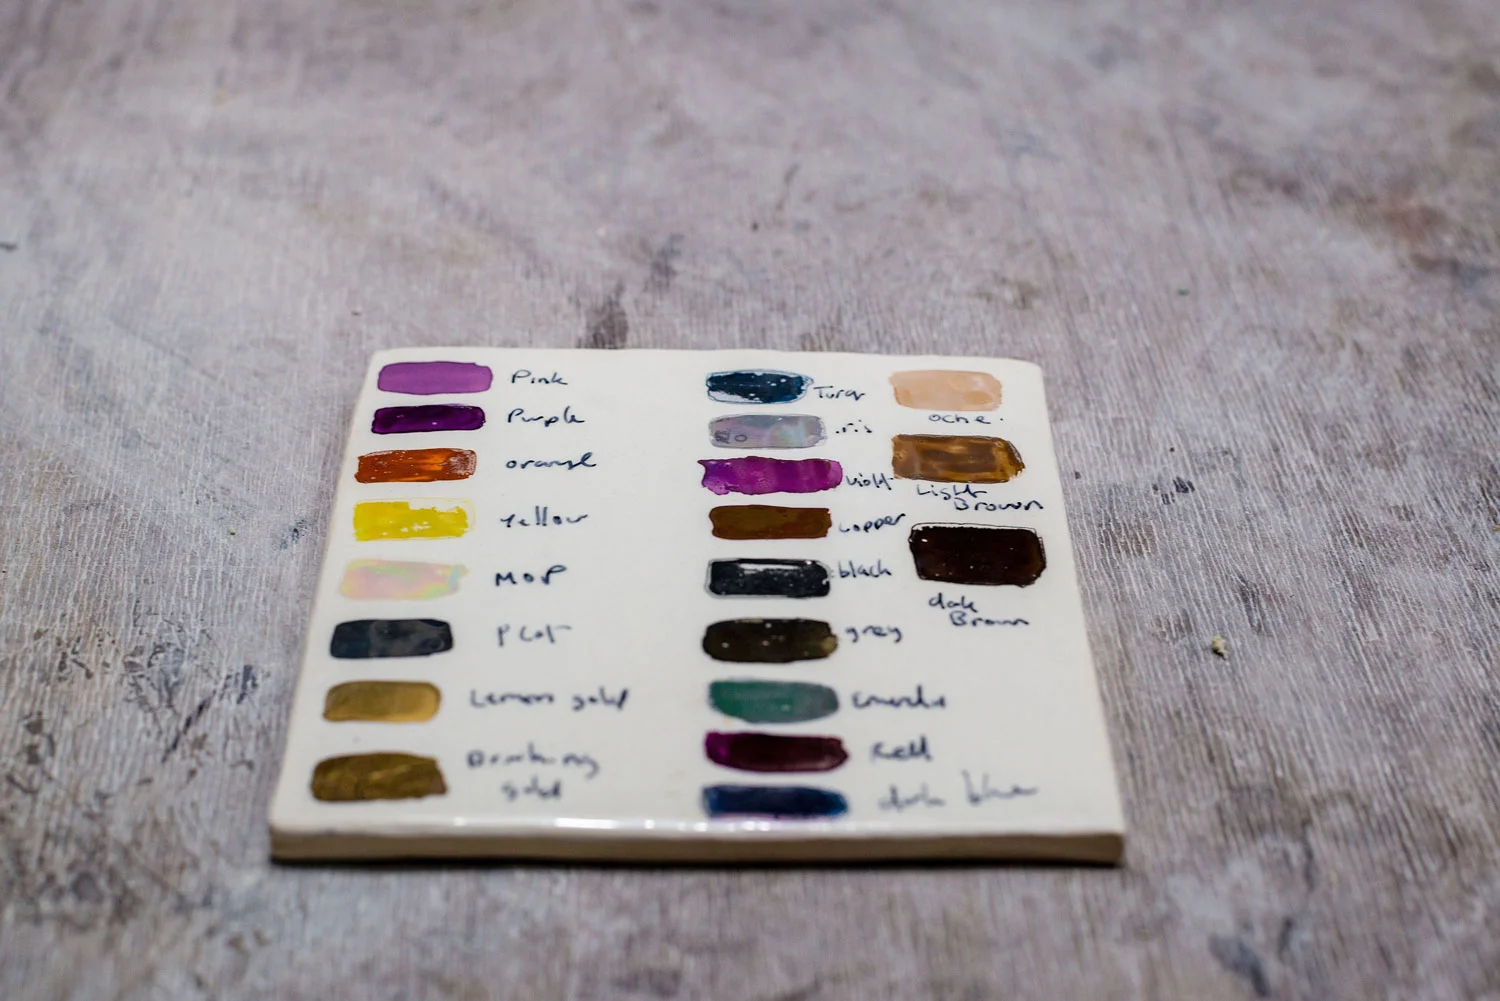 Pink
Purple
orange
Yellow
MOP
Lemon gold
gold
Turq
iris
Violet
copper
black
grey
Red
dark blue
oche.
Light
Brown
dak
Brown